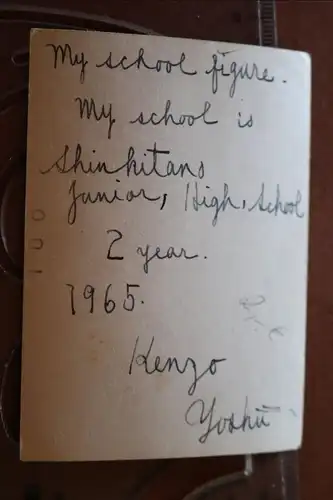 My school figure.
My school is
Shinkitano
Junior, High, School
2 year.
1965.
Kenzo
Yoshū
100